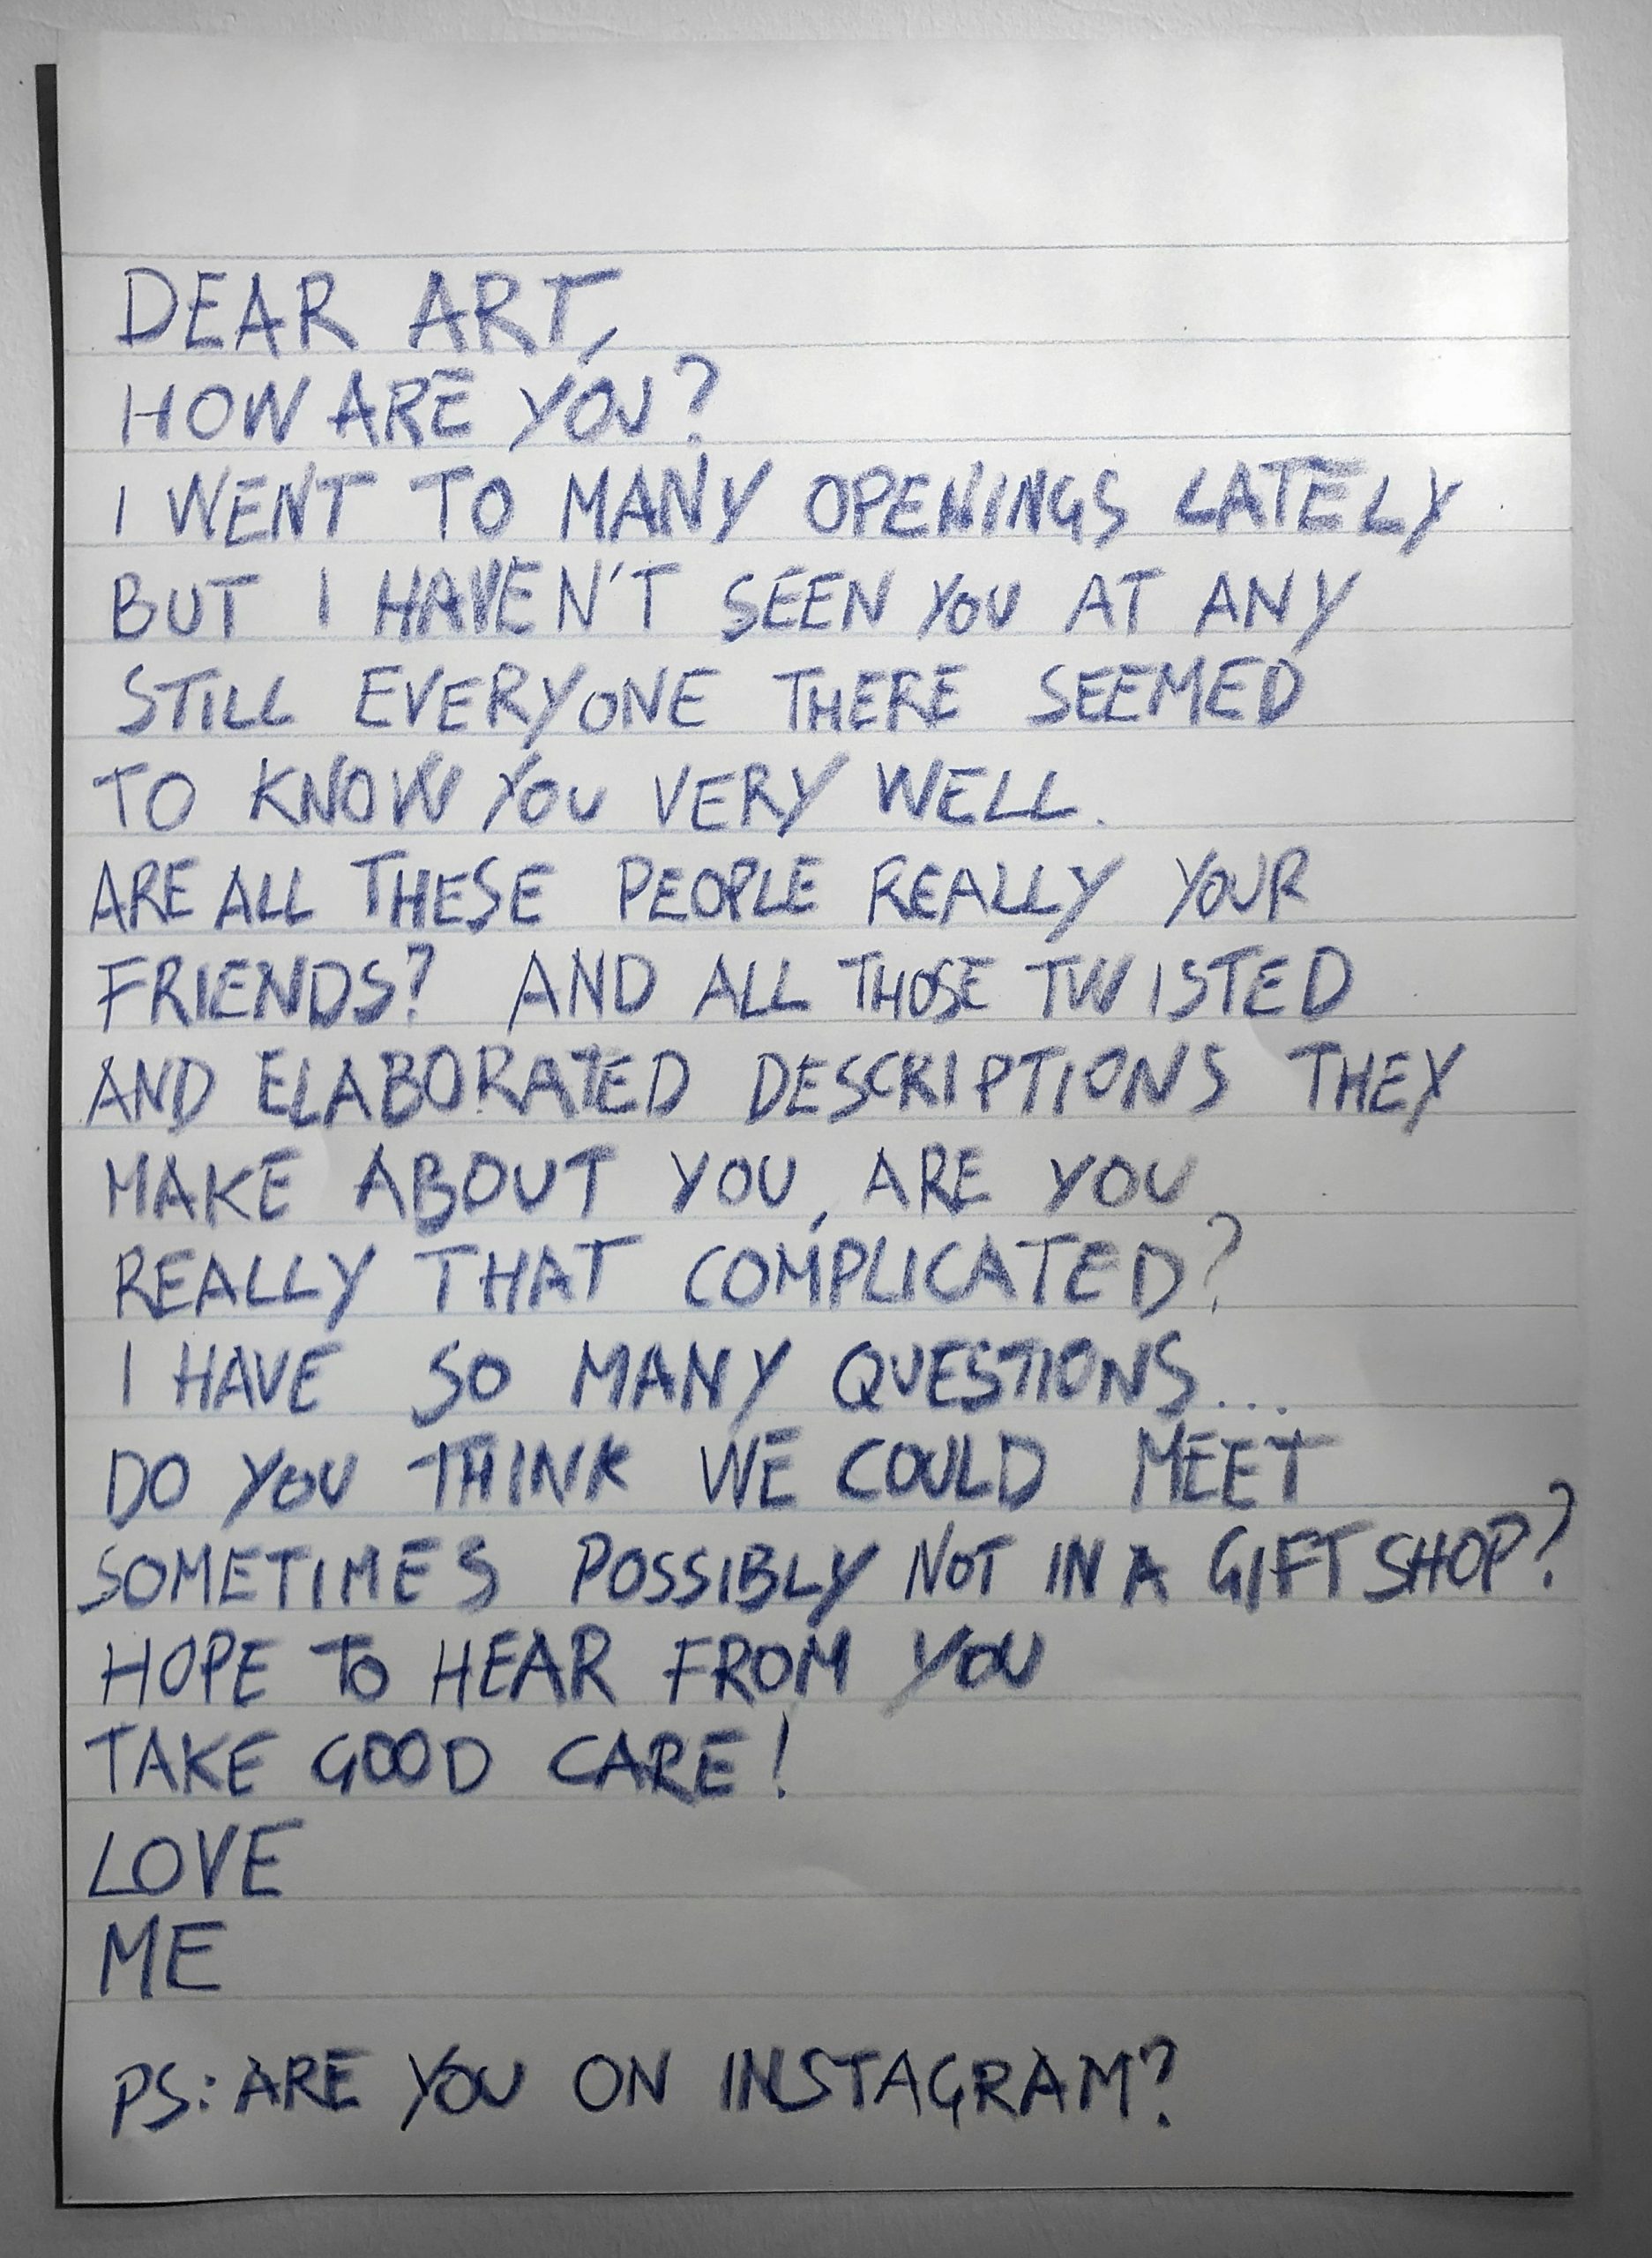 DEAR ART,
HOW ARE YOU?
I WENT TO MANY OPENINGS LATELY
BUT I HAVEN'T SEEN YOU AT ANY
STILL EVERYONE THERE SEEMED
TO KNOW YOU VERY WELL.
ARE ALL THESE PEOPLE REALLY YOUR
FRIENDS? AND ALL THOSE TWISTED
AND ELABORATED DESCRIPTIONS THEY
MAKE ABOUT YOU, ARE YOU
REALLY THAT COMPLICATED?
I HAVE SO MANY QUESTIONS...
DO YOU THINK WE COULD MEET
SOMETIMES POSSIBLY NOT IN A GIFT SHOP?
HOPE TO HEAR FROM YOU
TAKE GOOD CARE!
LOVE
ME
PS: ARE YOU ON INSTAGRAM?